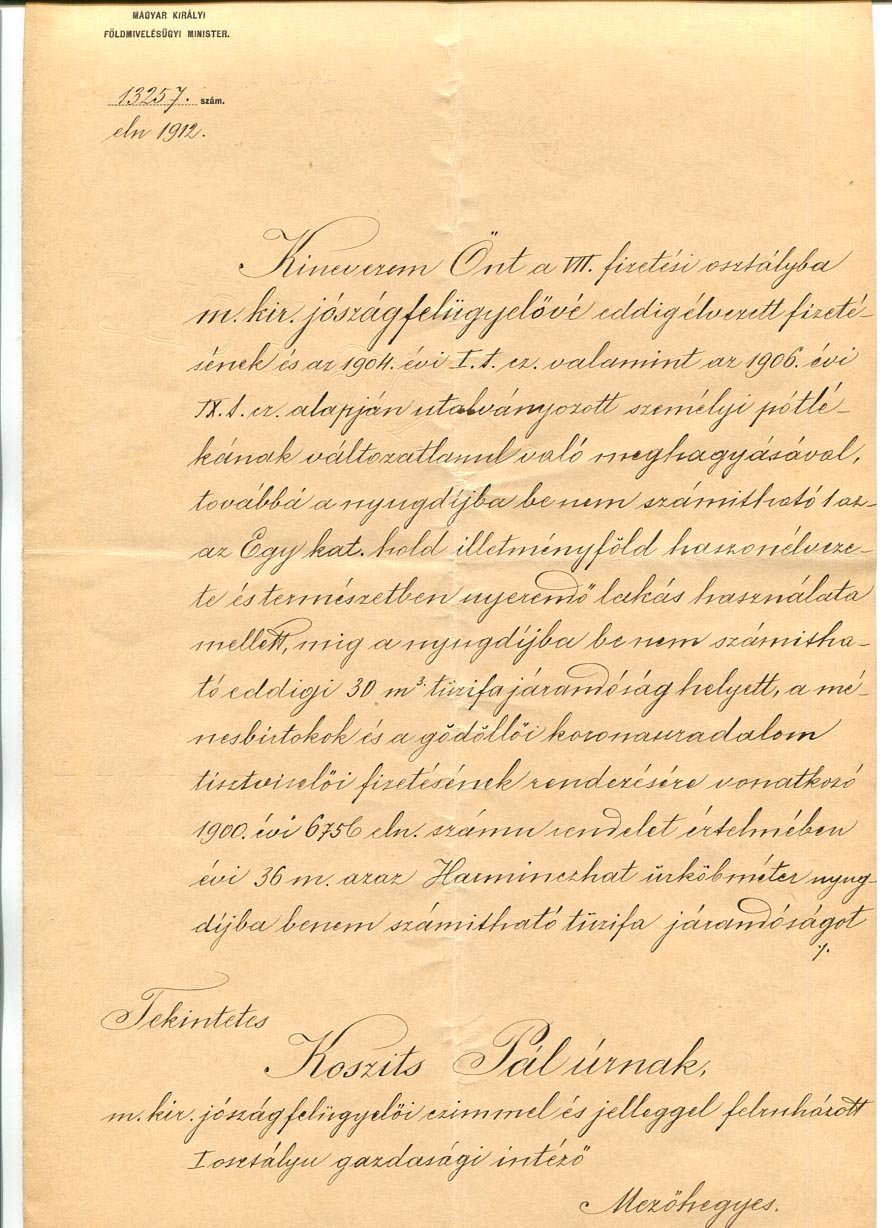 MAGYAR KIRÁLYI
FÖLDMIVELÉSÜGYI MINISTER.
13257. szám.
eln 1912.
Kinevezem Önt a VII. fizetési osztályba
m. kir. jószágfelügyelővé eddig élvezett fizeté-
sének és az 1904. évi I. t. cz. valamint az 1906. évi
IX. t. cz. alapján utalványozott személyi pótlé-
kának változatlanul való meghagyásával,
továbbá a nyugdíjba be nem számitható 1 az-
az Egy kat. hold illetményföld haszonélveze-
te és természetben nyerendő lakás használata
mellett, mig a nyugdíjba be nem számitha-
tó eddigi 30 m³. tüzifajárandóság helyett, a mé-
nesbirtokok és a gödöllői koronauradalom
tisztviselői fizetésének rendezésére vonatkozó
1900. évi 6756 eln. számu rendelet értelmében
évi 36 m. azaz Harminczhat ürköbméter nyug-
díjba be nem számitható tüzifa járandóságot
./.
Tekintetes
Koszits Pál úrnak,
m. kir. jószágfelügyelői czimmel és jelleggel felruházott
I osztályu gazdasági intéző
Mezőhegyes.